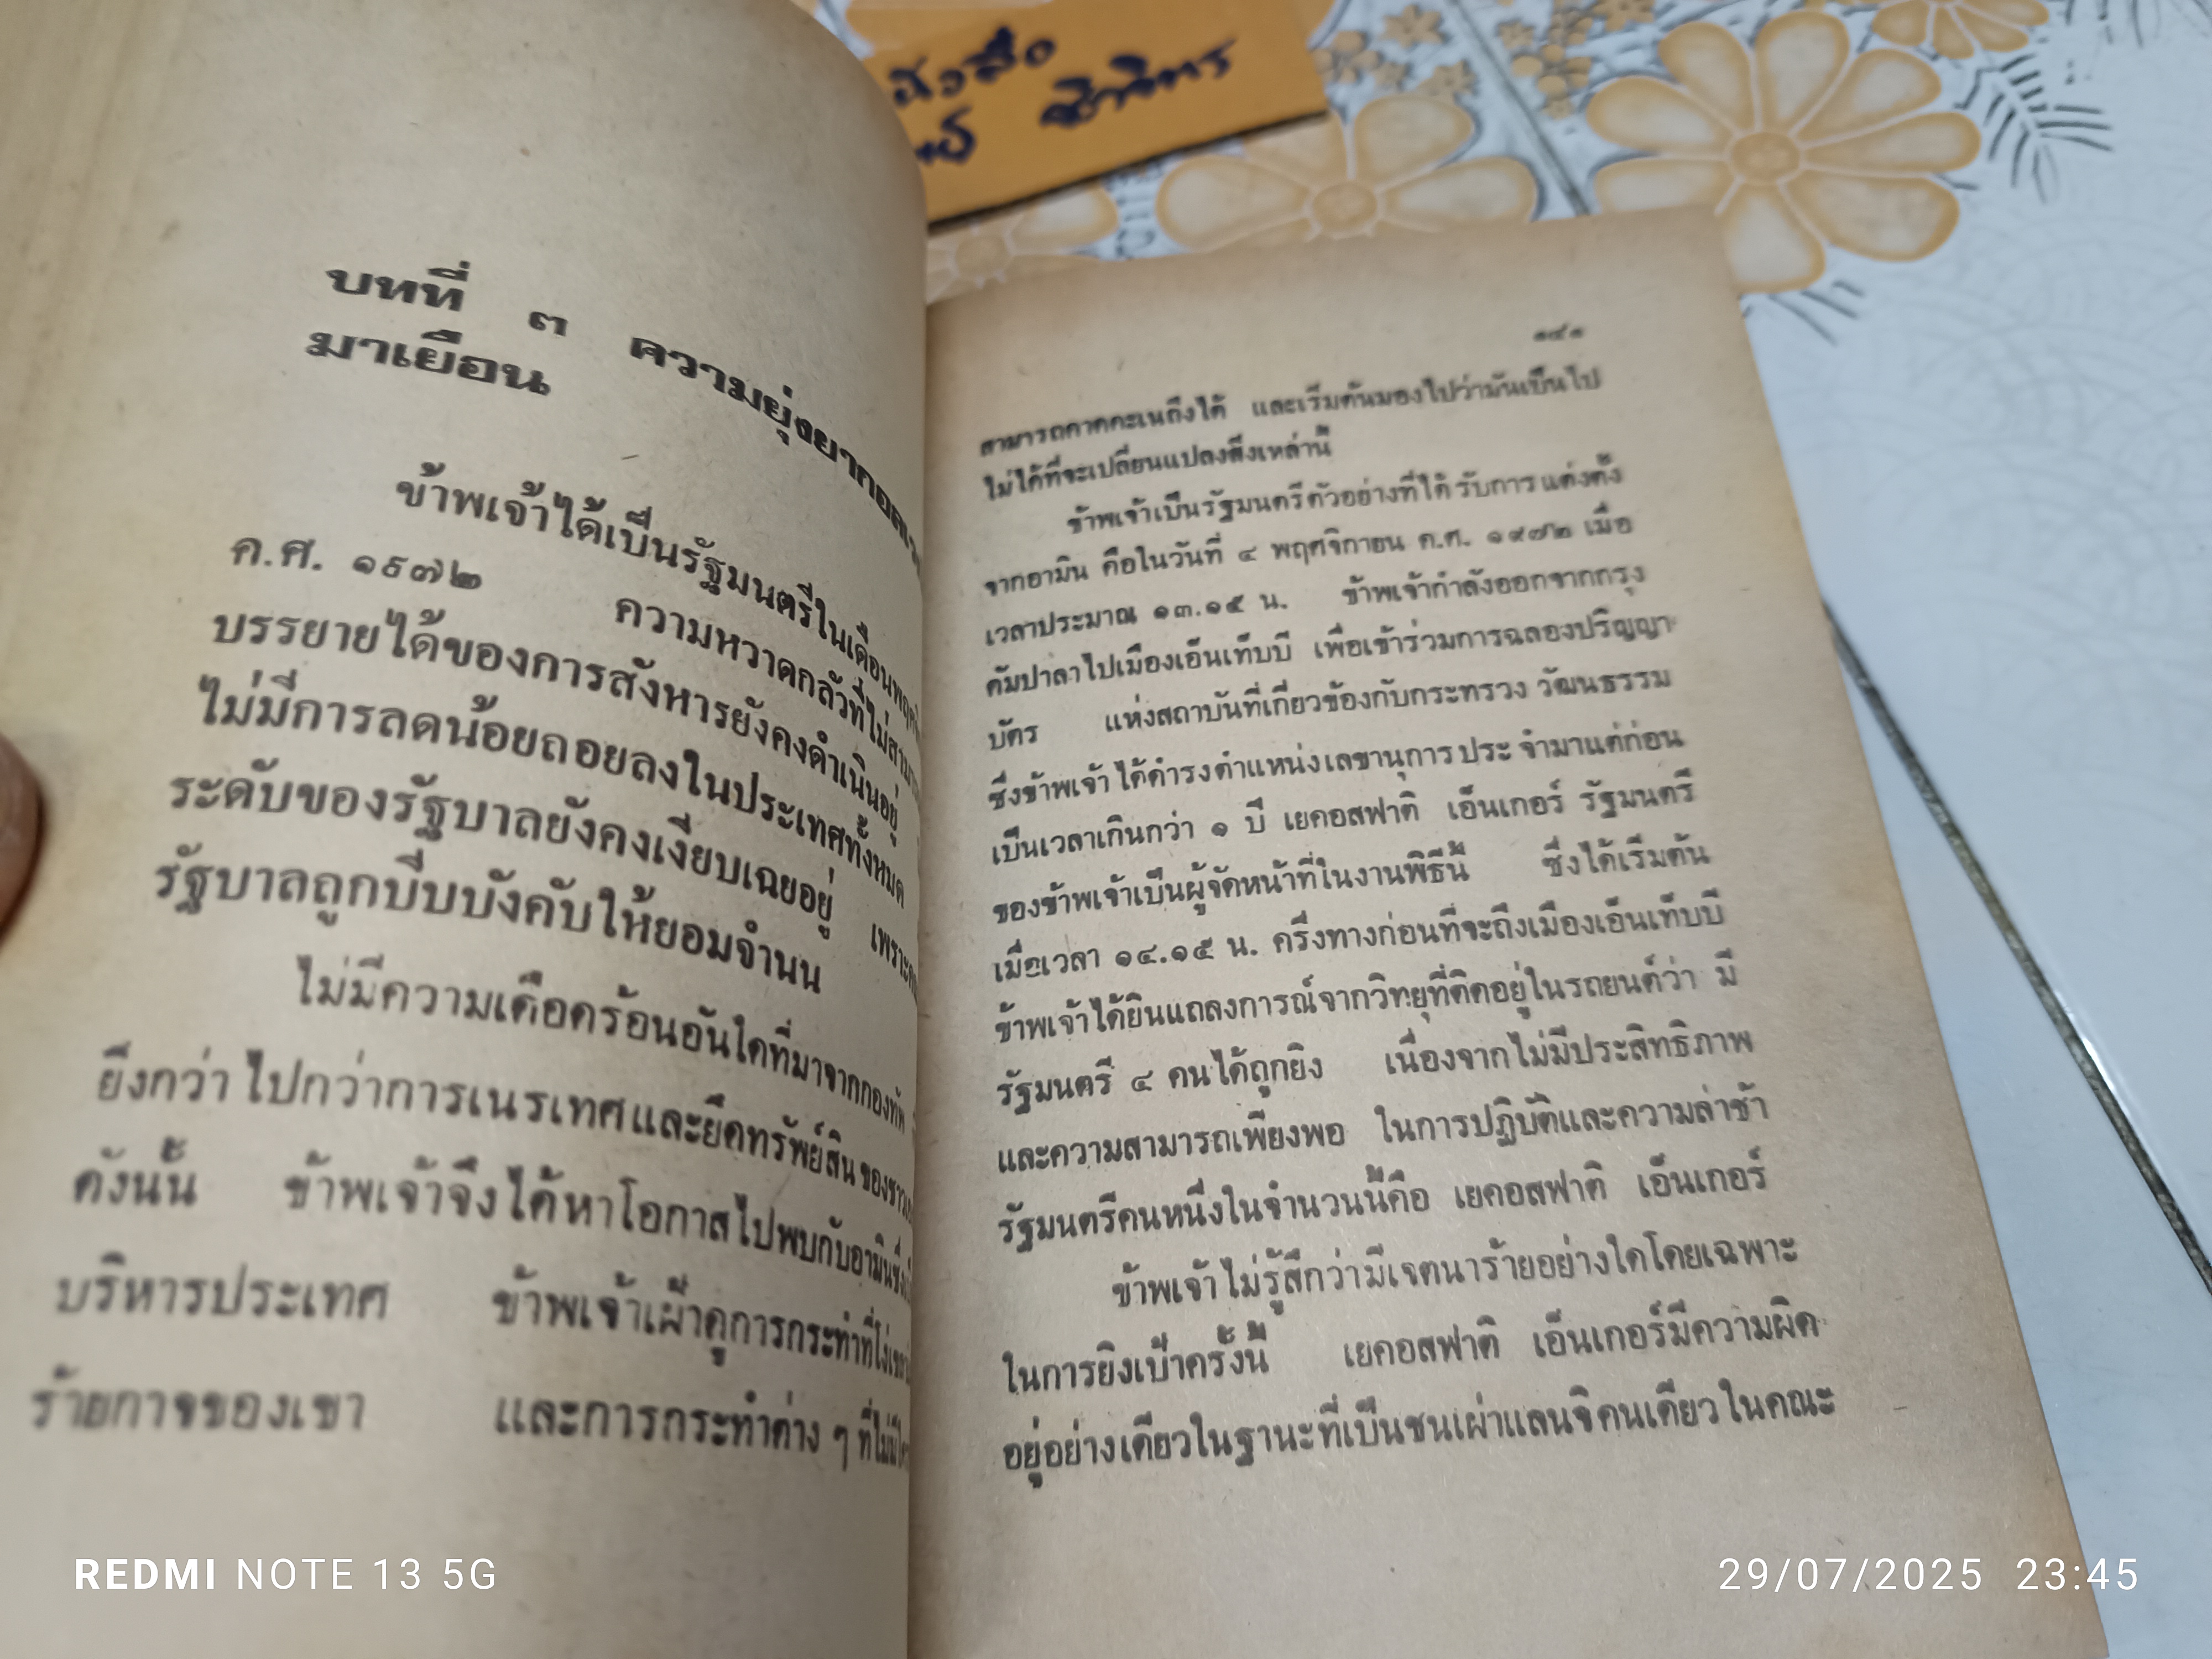 สวสือ
ชิกจิทร
บทที่ ๓ ความยุ่งยากอลเว
มาเยือน
ข้าพเจ้าได้เป็นรัฐมนตรีในเดือนพฤศ
ค.ศ. ๑๙๗๒ ความหวาดกลัวที่ไม่สามาร
บรรยายได้ของการสังหารยังคงดำเนินอยู่
ไม่มีการลดน้อยถอยลงในประเทศทั้งหมด
ระดับของรัฐบาลยังคงเงียบเฉยอยู่ เพราะ
รัฐบาลถูกบีบบังคับให้ยอมจำนน
ไม่มีความเดือดร้อนอันใดที่มาจากกองทัพ
ยิ่งกว่า ไปกว่าการเนรเทศและยึดทรัพย์สิน ของชาว
ดังนั้น ข้าพเจ้าจึงได้หาโอกาสไปพบกับอามินซึ่ง
บริหารประเทศ ข้าพเจ้าเฝ้าดูการกระทำที่โง่เขลา
ร้ายกาจของเขา และการกระทำต่าง ๆ ที่ไม่มี
๑๔๑
สามารถคาดคะเนถึงได้ และเริ่มต้นมองไปว่ามันเป็นไป
ไม่ได้ที่จะเปลี่ยนแปลงสิ่งเหล่านี้
ข้าพเจ้าเป็นรัฐมนตรีตัวอย่างที่ได้รับการแต่งตั้ง
จากอามิน คือในวันที่ ๔ พฤศจิกายน ค.ศ. ๑๙๗๒ เมื่อ
เวลาประมาณ ๑๓.๑๕ น. ข้าพเจ้ากำลังออกจากกรุง
คัมปาลาไปเมืองเอ็นเท็บบี เพื่อเข้าร่วมการฉลองปริญญา
บัตร แห่งสถาบันที่เกี่ยวข้องกับกระทรวง วัฒนธรรม
ซึ่งข้าพเจ้า ได้ดำรงตำแหน่งเลขานุการ ประ จำมาแต่ก่อน
เป็นเวลาเกินกว่า ๑ ปี เยคอสฟาติ เอ็นเกอร์ รัฐมนตรี
ของข้าพเจ้าเป็นผู้จัดหน้าที่ในงานพิธีนี้ ซึ่งได้เริ่มต้น
เมื่อเวลา ๑๔.๑๕ น. ครึ่งทางก่อนที่จะถึงเมืองเอ็นเท็บบี
ข้าพเจ้าได้ยินแถลงการณ์จากวิทยุที่ติดอยู่ในรถยนต์ว่า มี
รัฐมนตรี ๔ คนได้ถูกยิง เนื่องจากไม่มีประสิทธิภาพ
และความสามารถเพียงพอ ในการปฏิบัติและความล่าช้า
รัฐมนตรีคนหนึ่งในจำนวนนี้คือ เยคอสฟาติ เอ็นเกอร์
ข้าพเจ้าไม่รู้สึกว่ามีเจตนาร้ายอย่างใดโดยเฉพาะ
ในการยิงเป้าครั้งนี้ เยคอสฟาติ เอ็นเกอร์มีความผิด
อยู่อย่างเดียวในฐานะที่เป็นชนเผ่าแลนจิคนเดียวในคณะ
REDMI NOTE 13 5G
29/07/2025 23:45